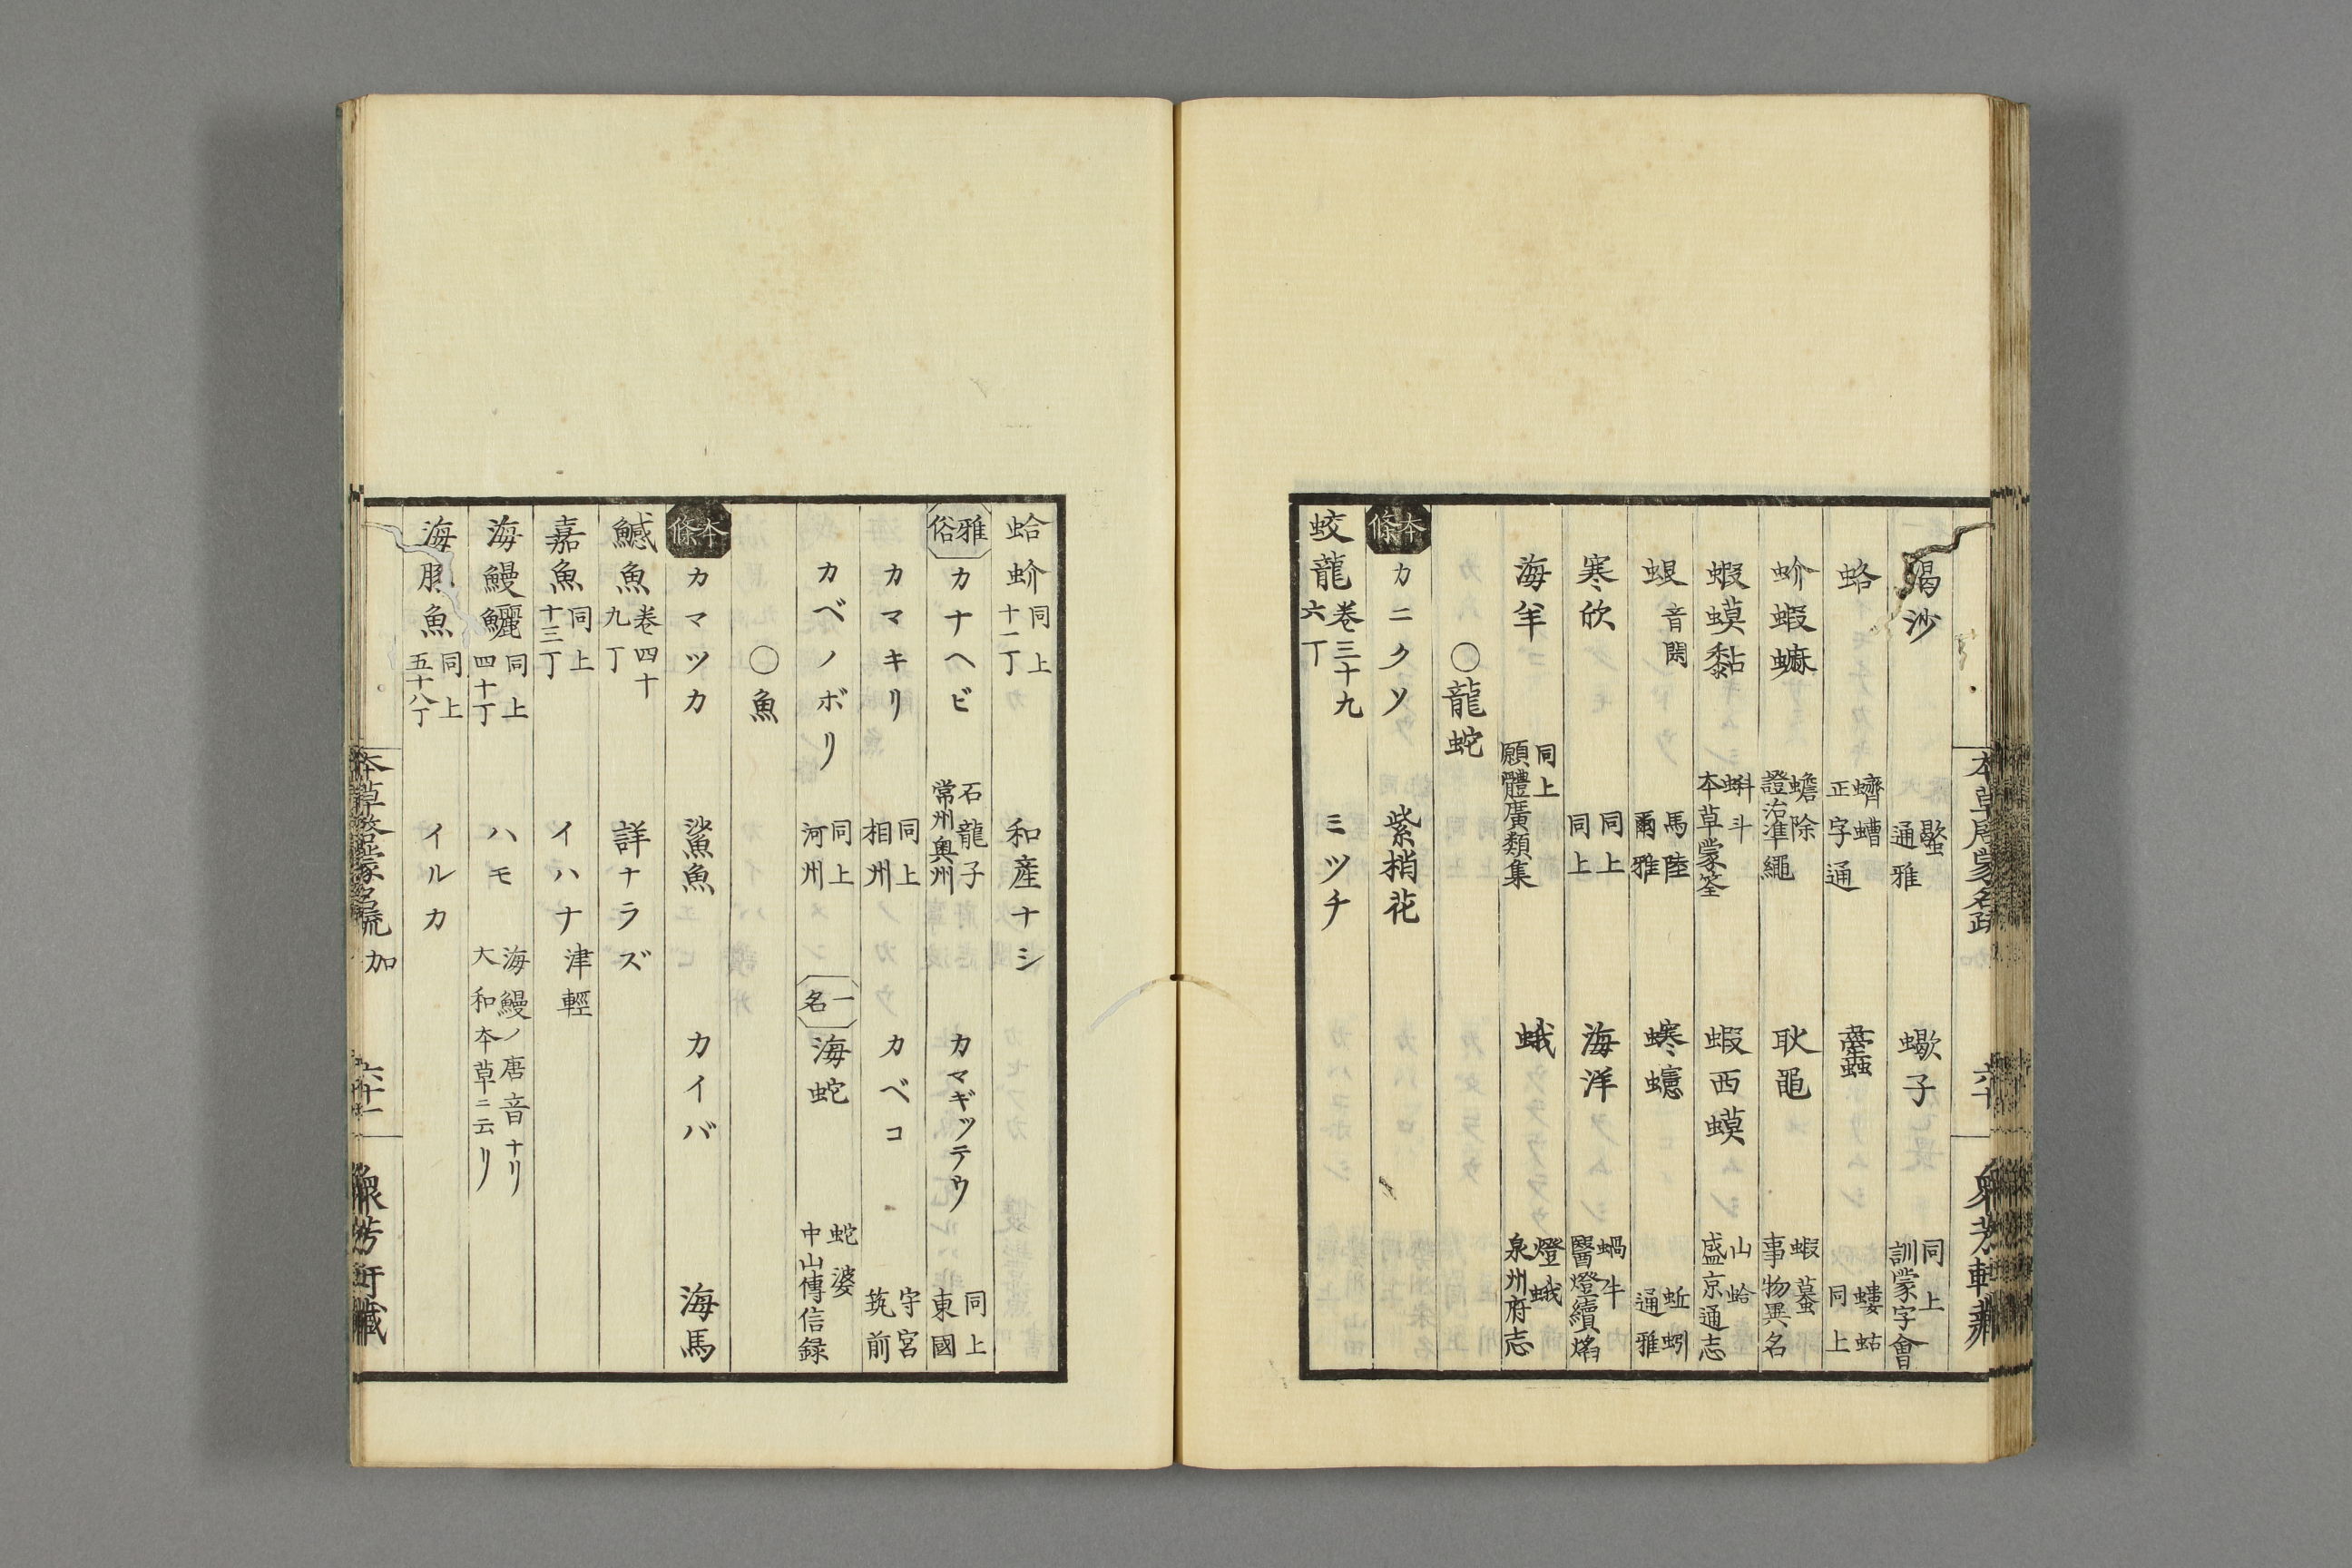 蝎沙 螱 通雅 蠍子 同上 訓蒙字會
蛒 蠐螬 正字通 蠹 螻蛄 同上
蚧蝦蟆 蟾除 證治準繩 耿黽 蝦蟇 事物異名
蝦蟆黏 蝌斗 本草蒙筌 蝦西蟆 山蛤 盛京通志
蛝 音閑 馬陸 爾雅 蚯蚓 通雅
寒欣 同上 同上 海洋 蝸牛 醫燈續焰
海羊 同上 願體廣類集 蛾 燈蛾 泉州府志
〇龍蛇
本條 カニクソ 紫梢花
蛟龍 卷三十九 六丁 ミツチ
蛤蚧 同上 十一丁 和産ナシ
雅俗 カナヘビ 石龍子 常州奥州 カマギッテウ 同上 東國
カマキリ 同上 相州 カベコ 守宮 筑前
カベノボリ 同上 河州 一名 海蛇 蛇婆 中山傳信録
〇魚
本條 カマツカ 鯊魚 カイバ 海馬
鰄魚 卷四十 九丁 詳ナラズ
嘉魚 同上 十三丁 イハナ 津輕
海鰻鱺 同上 四十丁 ハモ 海鰻ノ唐音ナリ 大和本草ニ云リ
海豚魚 同上 五十八丁 イルカ
本草啓蒙名疏 加 六十一